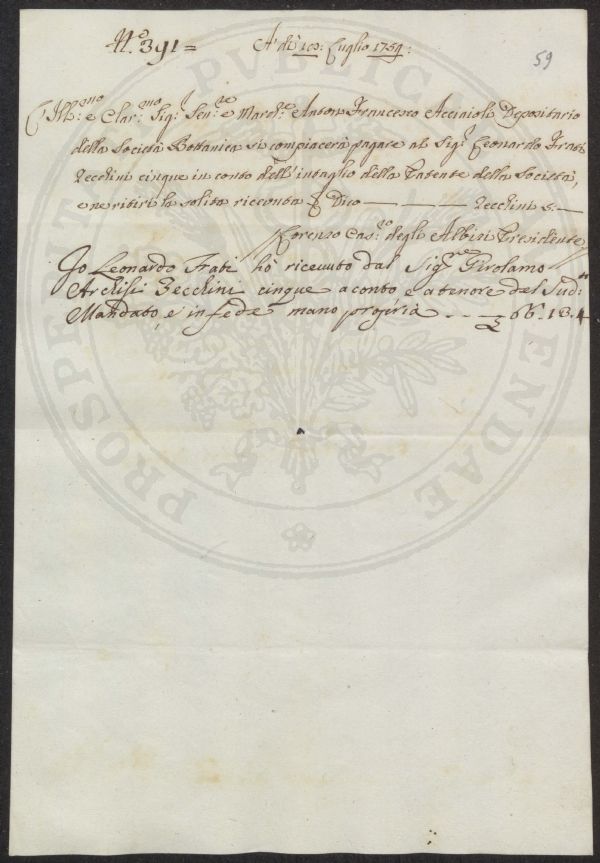 N.° 391 =
A' dì 10: Luglio 1759:
59
Ill:mo e Clar:mo Sig:r Sen:re e March:e Anton Francesco Acciaioli Depositario
della Società Bottanica si compiacerà pagare al Sig:r Leonardo Frati
Zecchini cinque in conto dell'intaglio della Patente della Società,
e ne ritiri la solita riceuuta Dico Zecchini 5:
Lorenzo Cas: degli Albizi Presidente
Io Leonardo Frati hò riceuuto dal Sig:re Girolamo
Zecchini cinque a conto e a tenore del Sud:tto
Mandato, e in fede mano propria £ 66.13.4
PROSPERITATI PVBLICAE AVGENDAE